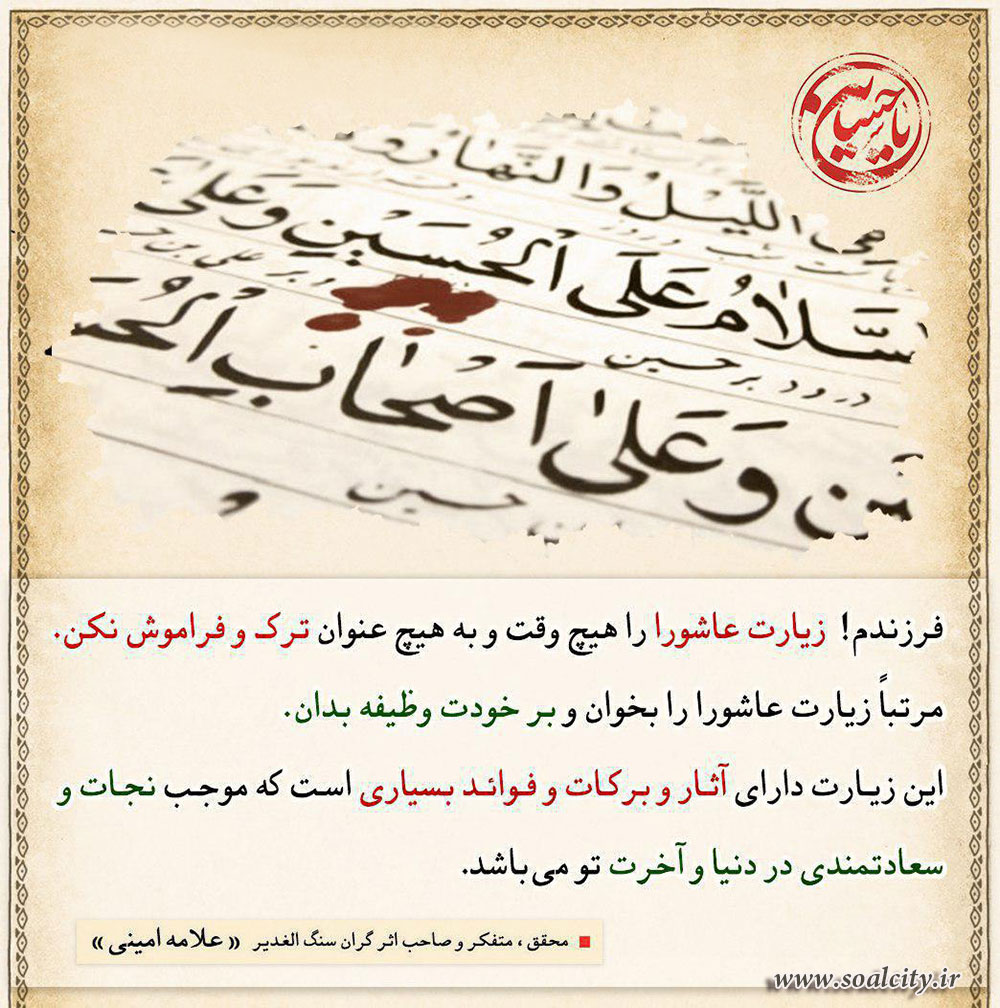 یا حسین
اللَّیْلُ وَالنَّهارُ وَ
السَّلامُ عَلَی الْحُسَیْنِ وَعَلی
درود بر حسین
وَعَلی اَصْحابِ الْحُسَ
حسین
فرزندم! زیارت عاشورا را هیچ وقت و به هیچ عنوان ترک و فراموش نکن.
مرتباً زیارت عاشورا را بخوان و بر خودت وظیفه بدان.
این زیارت دارای آثار و برکات و فوائد بسیاری است که موجب نجات و
سعادتمندی در دنیا و آخرت تو می‌باشد.
محقق ، متفکر و صاحب اثر گران سنگ الغدیر « علامه امینی »
www.soalcity.ir